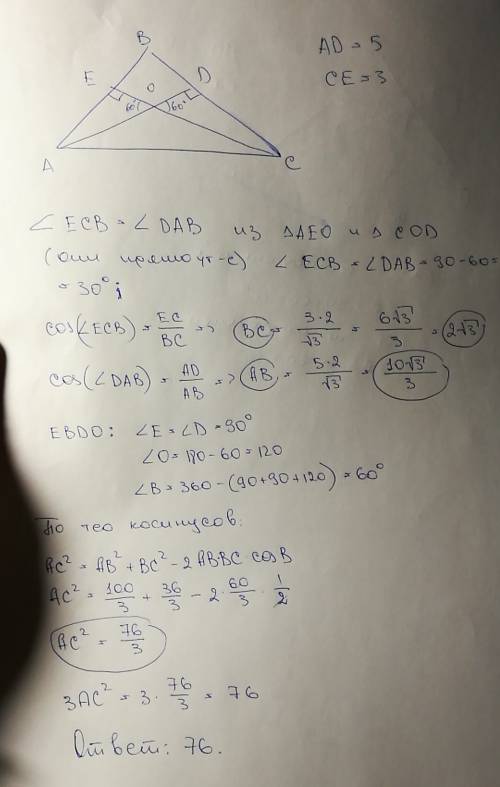 B
AD = 5
CE = 3
E O D
60° 60°
A C
∠ ECB = ∠ DAB из △AEO и △ COD
(они прямоуг-е) ∠ ECB = ∠DAB = 90-60=
= 30°;
cos(∠ECB) = EC/BC => BC = 3·2/√3 = 6√3/3 = 2√3
cos(∠DAB) = AD/AB => AB = 5·2/√3 = 10√3/3
EBDO: ∠E = ∠D = 90°
∠O = 180 - 60 = 120
∠B = 360 - (90+90+120) = 60°
По тео косинусов:
AC² = AB² + BC² - 2AB·BC·cosB
AC² = 100/3 + 36/3 - 2·60/3·1/2
AC² = 76/3
3AC² = 3·76/3 = 76
Ответ: 76.